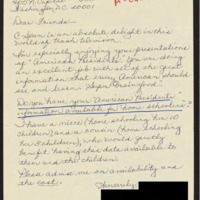 400 N. Capitol
Washington DC
20001
Dear Friends:
C-Span is an absolute delight in this
world of trash television.
Am especially enjoying your presentations
of "American Presidents". You are doing
an excellent job with all of the great
information, that every American should
see and learn. Super
Do you have your "American Presidents"
information available for "home schoolers"?
I have a niece (home schooling her 10
children) and a cousin (home schooling
her children), who would greatly
benefit having this data available to
them and the children.
Please advise me on availability and
the cost.
Sincerely,